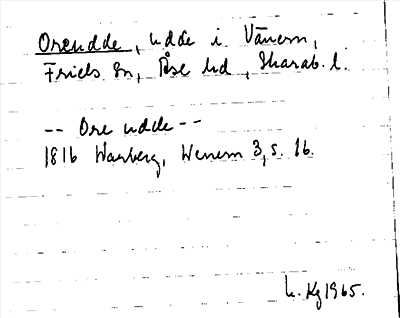 Oreudde, udde i Vänern,
Friels sn, Åse hd, Skarab. l.
-- Ore udde --
1816 Warberg, Wenern 3, s. 16.
L. Kg 1965.